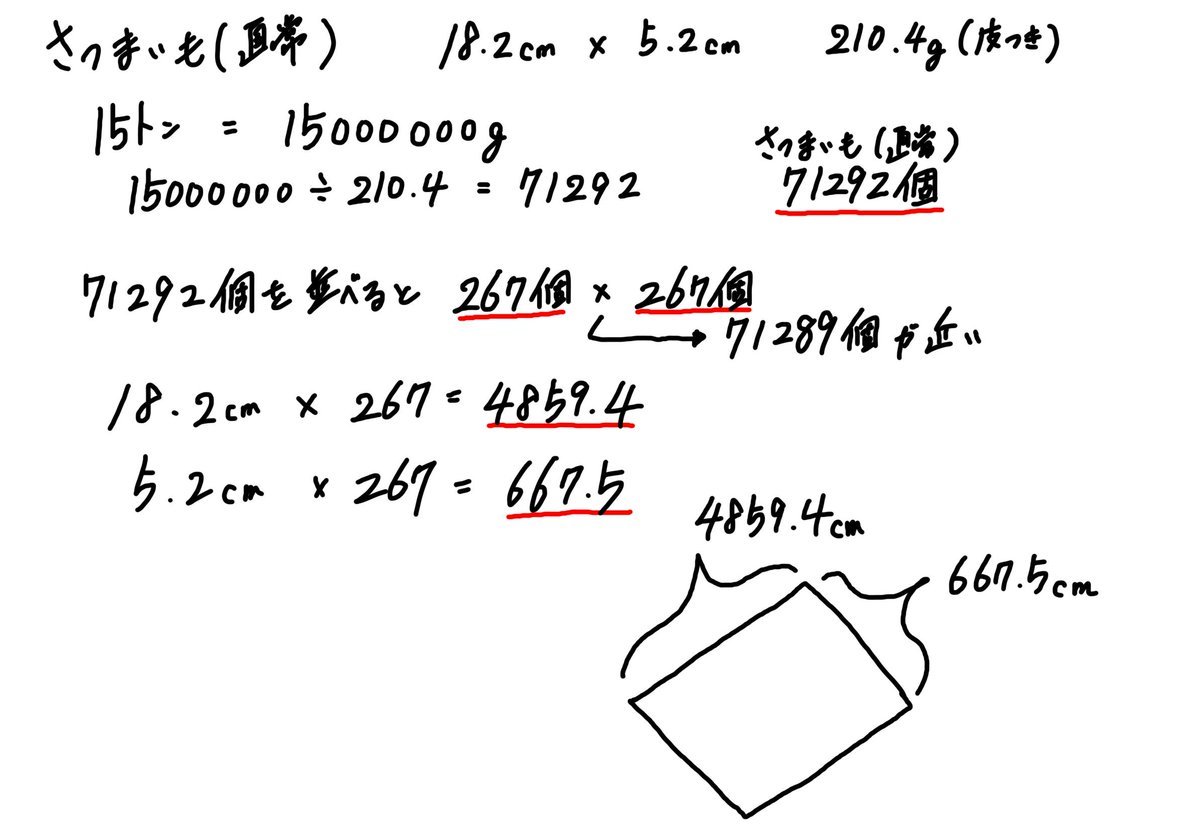 さつまいも(通常) 18.2cm × 5.2cm 210.4g(皮つき)
15トン = 15000000g
15000000÷210.4 = 71292
さつまいも(通常)
71292個
71292個を並べると 267個 × 267個
71289個が近い
18.2cm × 267 = 4859.4
5.2cm × 267 = 667.5
4859.4cm
667.5cm